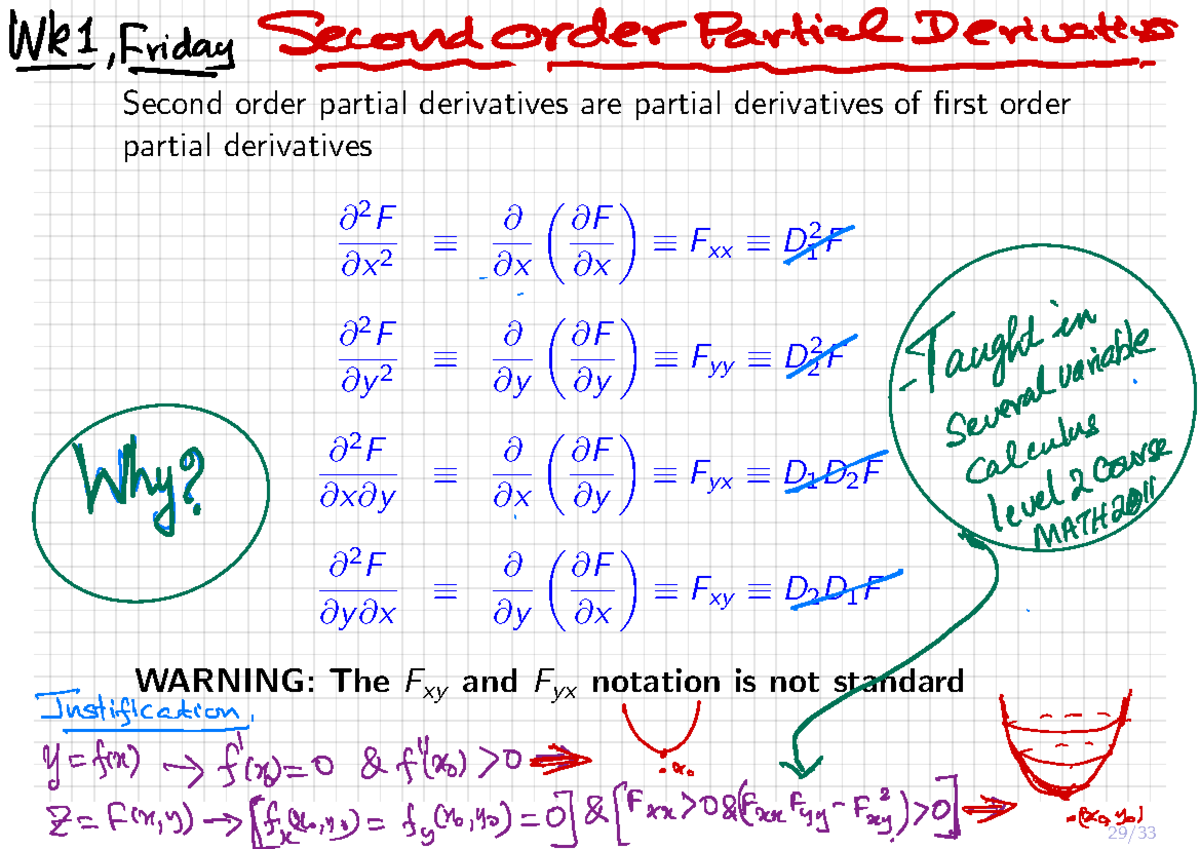 Wk1, Friday Second order Partial Derivatives
Second order partial derivatives are partial derivatives of first order
partial derivatives
∂²F/∂x² ≡ ∂/∂x (∂F/∂x) ≡ F_xx ≡ D₁²F
∂²F/∂y² ≡ ∂/∂y (∂F/∂y) ≡ F_yy ≡ D₂²F
∂²F/∂x∂y ≡ ∂/∂x (∂F/∂y) ≡ F_yx ≡ D₁D₂F
∂²F/∂y∂x ≡ ∂/∂y (∂F/∂x) ≡ F_xy ≡ D₂D₁F
Why?
Taught in
Several variable
Calculus
level 2 Course
MATH2011
WARNING: The F_xy and F_yx notation is not standard
Justification.
y = f(x) → f'(x₀) = 0 & f''(x₀) > 0 ⇒
x₀
Z = F(x,y) → [f_x(x₀,y₀) = f_y(x₀,y₀) = 0] & [F_xx > 0 & (F_xx F_yy − F_xy²) > 0] ⇒
(x₀, y₀)
29/33